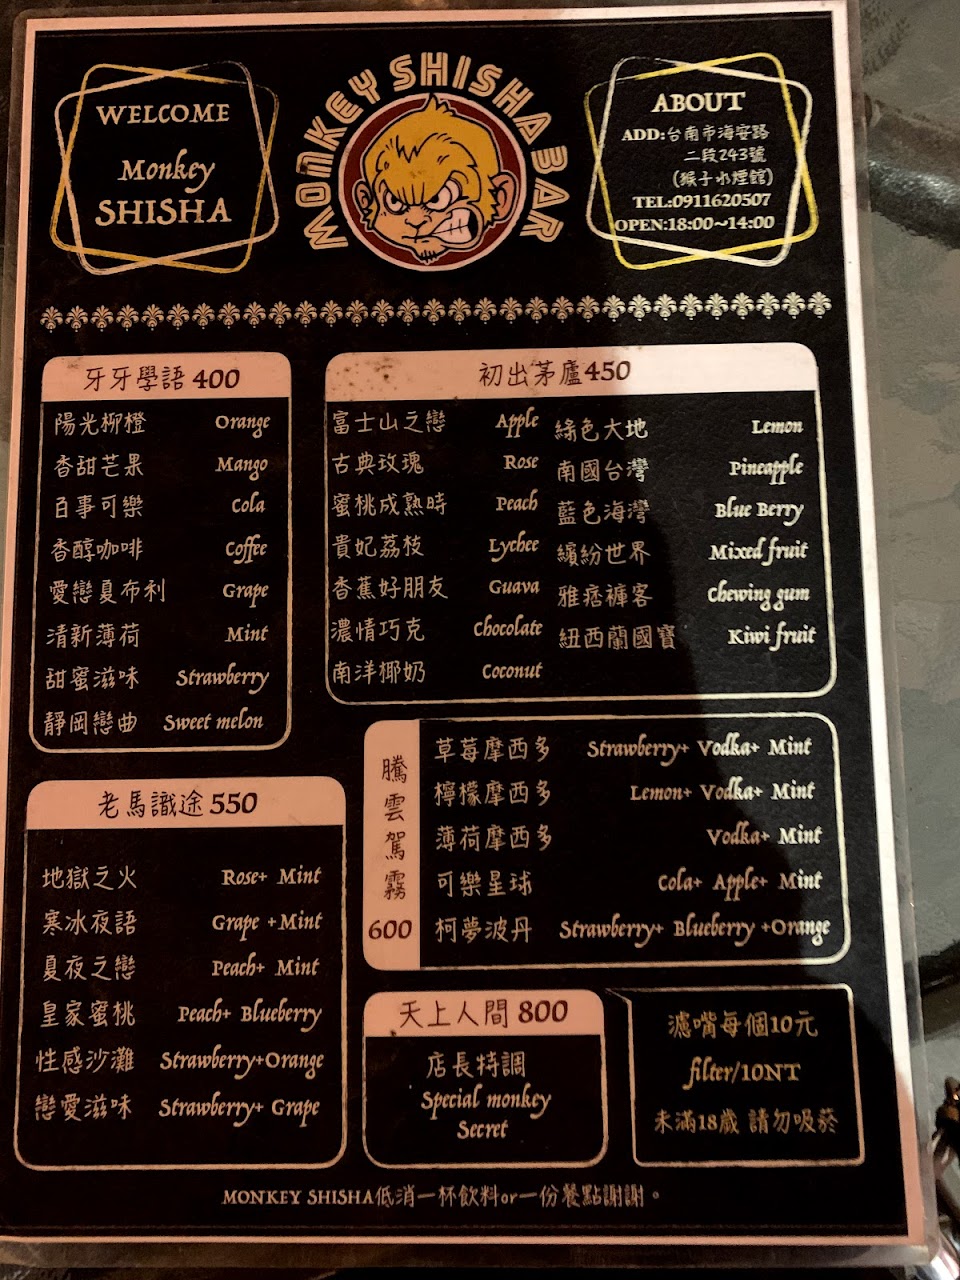 WELCOME
Monkey
SHISHA
MONKEY SHISHA BAR
ABOUT
ADD:台南市海安路
二段243號
(猴子水煙館)
TEL:0911620507
OPEN:18:00~14:00
牙牙學語 400
陽光柳橙 Orange
香甜芒果 Mango
百事可樂 Cola
香醇咖啡 Coffee
愛戀夏布利 Grape
清新薄荷 Mint
甜蜜滋味 Strawberry
靜岡戀曲 Sweet melon
初出茅廬450
富士山之戀 Apple
古典玫瑰 Rose
蜜桃成熟時 Peach
貴妃荔枝 Lychee
香蕉好朋友 Guava
濃情巧克 Chocolate
南洋椰奶 Coconut
綠色大地 Lemon
南國台灣 Pineapple
藍色海灣 Blue Berry
繽紛世界 Mixed fruit
雅痞褲客 Chewing gum
紐西蘭國寶 Kiwi fruit
老馬識途 550
地獄之火 Rose+ Mint
寒冰夜語 Grape +Mint
夏夜之戀 Peach+ Mint
皇家蜜桃 Peach+ Blueberry
性感沙灘 Strawberry+Orange
戀愛滋味 Strawberry+ Grape
騰雲駕霧
600
草莓摩西多 Strawberry+ Vodka+ Mint
檸檬摩西多 Lemon+ Vodka+ Mint
薄荷摩西多 Vodka+ Mint
可樂星球 Cola+ Apple+ Mint
柯夢波丹 Strawberry+ Blueberry +Orange
天上人間 800
店長特調
Special monkey
Secret
濾嘴每個10元
filter/10NT
未滿18歲 請勿吸菸
MONKEY SHISHA低消一杯飲料or一份餐點謝謝。